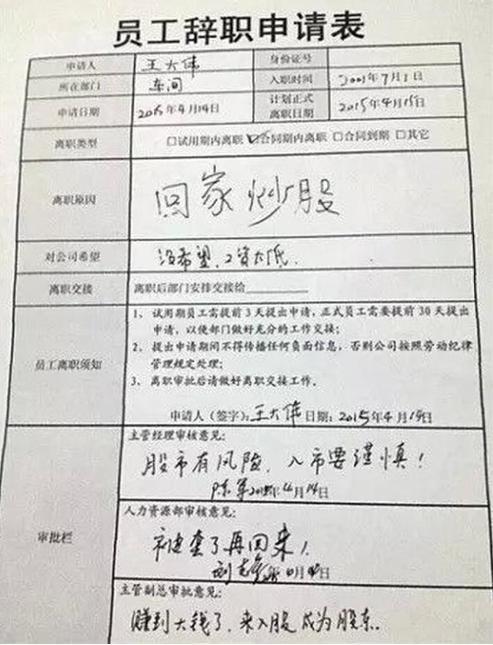 员工辞职申请表
申请人 王大伟 身份证号
所在部门 车间 入职时间 2001年7月1日
申请日期 2015年4月14日 计划正式离职日期 2015年4月15日
离职类型 □试用期内离职 ☑合同期内离职 □合同到期 □其它
离职原因 回家炒股
对公司希望 没希望,工资太低.
离职交接 离职后部门安排交接给
员工离职须知
1、试用期员工需提前3天提出申请,正式员工需要提前30天提出
申请,以便部门做好充分的工作交接;
2、提出申请期间不得传播任何负面信息,否则公司按照劳动纪律
管理规定处理;
3、离职审批后请做好离职交接工作.
申请人(签字):王大伟 日期:2015年4月14日
审批栏
主管经理审核意见:
股市有风险,入市要谨慎!
陈军
人力资源部审核意见:
被套了再回来!
主管副总审批意见:
赚到大钱了,来入股成为股东.